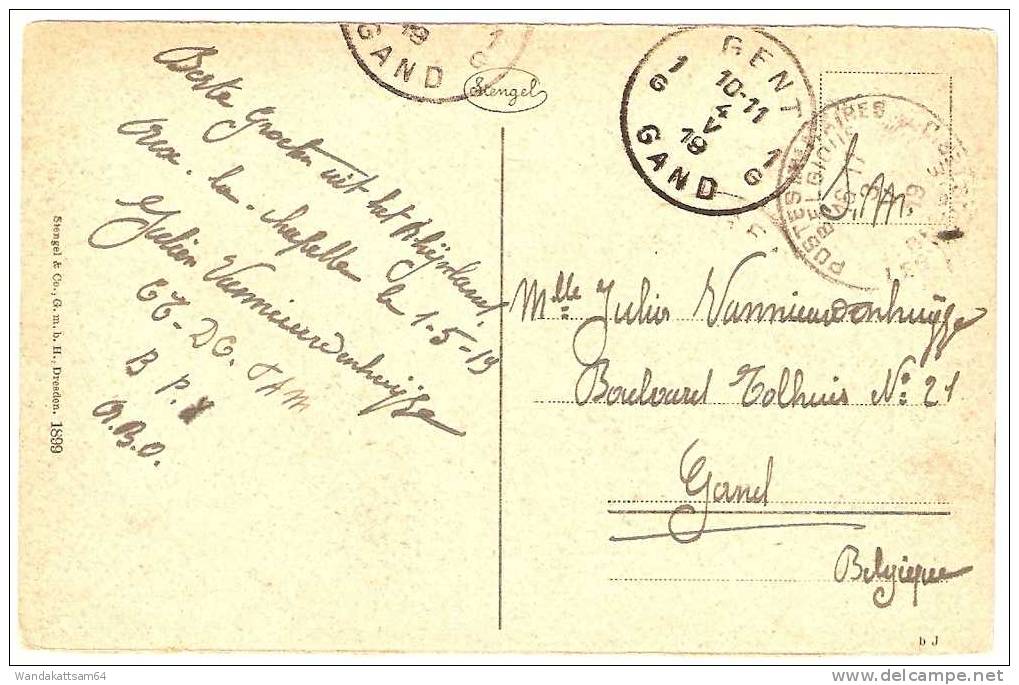 Beste Groeten uit het Rhijnland.
Aix-la-chapelle le 1-5-19
Julien Vannieuwenhuyse
B P.
A.B.O.
Stengel & Co., G. m. b. H., Dresden. 1899
19
1 G
GAND
Stengel
GENT
1 G
10-11
4
V
19
1 G
GAND
POSTES MILITAIRES
BELGIQUE
19
S.M.
Mlle Julia Vannieuwenhuyse
Boulevard Tolhuis No: 21
Gand
Belgique
b J
Wandakattsam64
delcampe.net